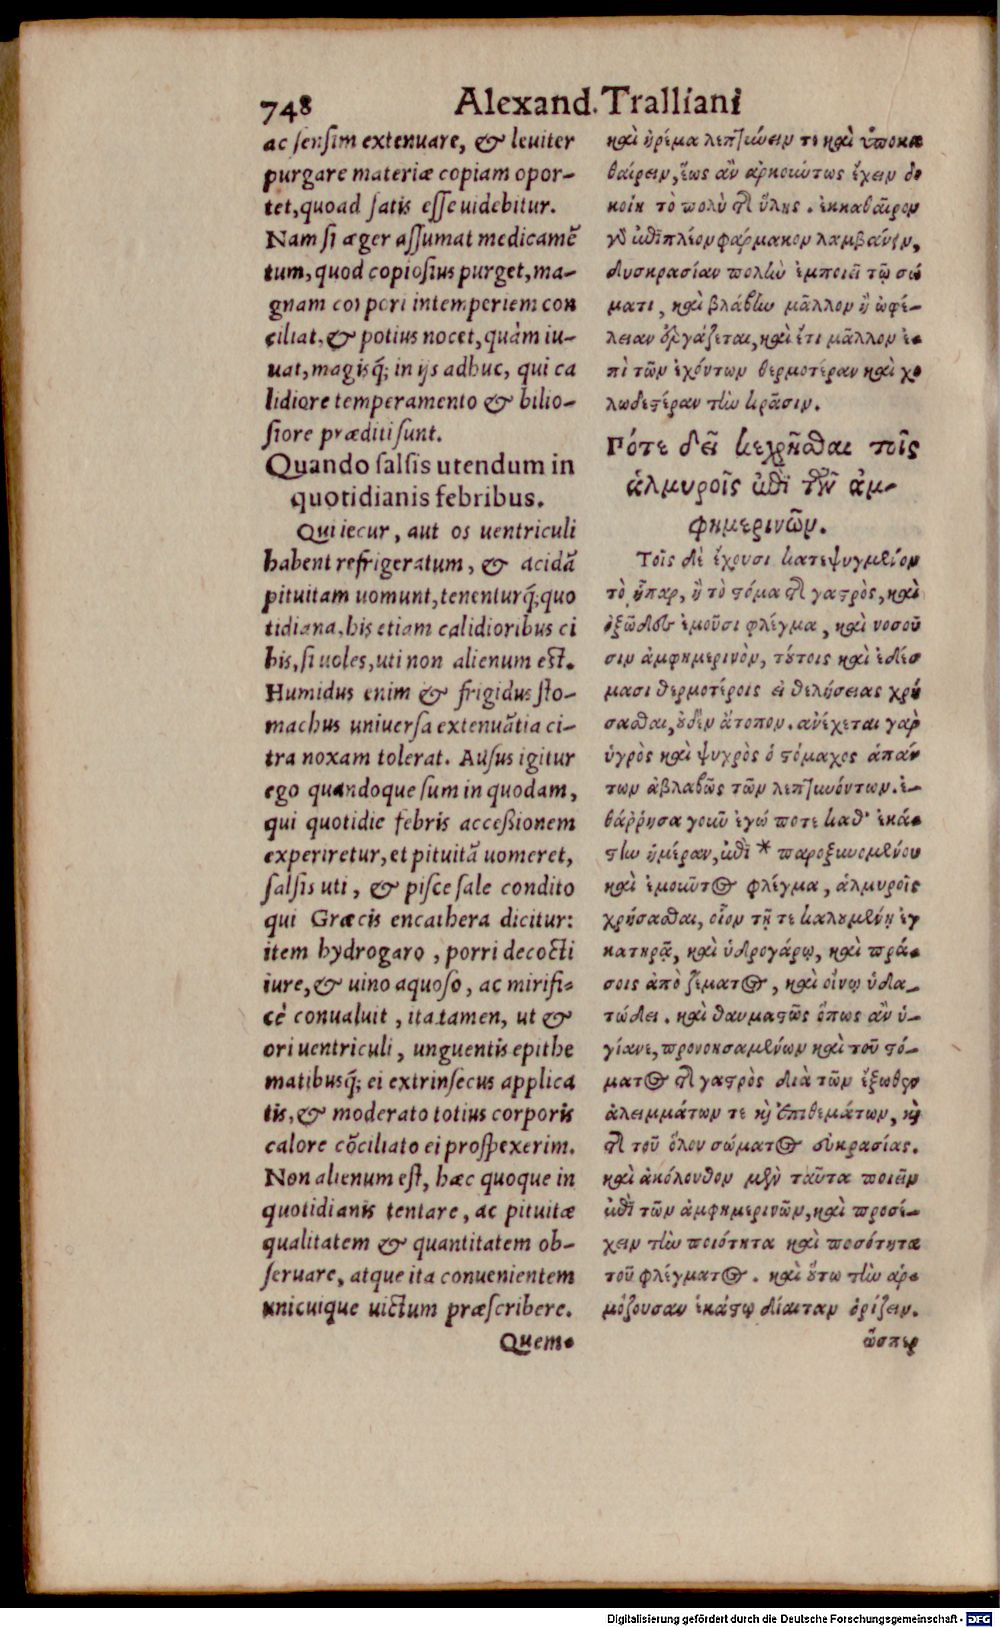 748 Alexand. Tralliani
ac sensim extenuare, & leuiter
purgare materiæ copiam opor-
tet, quoad satis esse uidebitur.
Nam si æger assumat medicamẽ
tum, quod copiosius purget, ma-
gnam corpori intemperiem con
ciliat, & potius nocet, quàm iu-
uat, magisq́; in ijs adhuc, qui ca
lidiore temperamento & bilio-
siore præditi sunt.
Quando salsis utendum in
quotidianis febribus.
Qui iecur, aut os uentriculi
habent refrigeratum, & acidã
pituitam uomunt, tenenturq́; quo
tidiana, his etiam calidioribus ci
bis, si uoles, uti non alienum est.
Humidus enim & frigidus sto-
machus uniuersa extenuãtia ci-
tra noxam tolerat. Ausus igitur
ego quandoque sum in quodam,
qui quotidie febris accessionem
experiretur, et pituitã uomeret,
salsis uti, & pisce sale condito
qui Græcis encathera dicitur:
item hydrogaro, porri decocti
iure, & uino aquoso, ac mirifi-
cè conualuit, ita tamen, ut &
ori uentriculi, unguentis epithe
matibusq́; ei extrinsecus applica
tis, & moderato totius corporis
calore cõciliato ei prospexerim.
Non alienum est, hæc quoque in
quotidianis tentare, ac pituitæ
qualitatem & quantitatem ob-
seruare, atque ita conuenientem
unicuique uictum præscribere.
Quem-
καὶ ἠρέμα λεπτύνειν τε καὶ ὑποκα
θαίρειν, ἕως ἂν ἀρκούντως ἔχειν δο
κοίη τὸ πολὺ τῆ ὕλης. ἐκκαθαῖρον
γὰ ἐπὶ πλέον φάρμακον λαμβάνειν,
δυσκρασίαν πολλὴν ἐμποιεῖ τῷ σώ
ματι, καὶ βλάβην μᾶλλον ἢ ὠφέ-
λειαν ἐργάζεται, καὶ ἔτι μᾶλλον ἐ-
πὶ τῶν ἐχόντων θερμοτέραν καὶ χο
λωδεστέραν τὴν κρᾶσιν.
Πότε δεῖ κεχρῆσθαι τοῖς
ἁλμυροῖς ἐπὶ τῶν ἀμ-
φημερινῶν.
Τοῖς δὲ ἔχουσι κατεψυγμένον
τὸ ἧπαρ, ἢ τὸ στόμα τῆ γαστρὸς, καὶ
ὀξῶδες ἐμοῦσι φλέγμα, καὶ νοσοῦ
σιν ἀμφημερινὸν, τούτοις καὶ ἐδέσ
μασι θερμοτέροις εἰ θελήσειας χρή
σασθαι, οὐδὲν ἄτοπον. ἀνέχεται γαρ
ὑγρὸς καὶ ψυχρὸς ὁ στόμαχος ἁπάν
των ἀβλαβῶς τῶν λεπτυνόντων. ἐ-
θάῤῥησα γοῦν ἐγώ ποτε καθ’ ἑκά-
στην ἡμέραν, ἐπὶ * παροξυνομένου
καὶ ἐμοῦντος φλέγμα, ἁλμυροῖς
χρήσασθαι, οἷον τῇ τε καλουμένῃ ἐγ
κατηρᾷ, καὶ ὑδρογάρῳ, καὶ πρά-
σοις ἀπὸ ζέματος, καὶ οἴνῳ ὑδα-
τώδει. καὶ θαυμαστῶς ὅπως ἂν ὑ-
γίανε, προνοησαμένων καὶ τοῦ στό-
ματος τῆ γαστρὸς διὰ τῶν ἔξωθεν
ἀλειμμάτων τε καὶ ἐπιθεμάτων, καὶ
τῆ τοῦ ὅλου σώματος εὐκρασίας.
καὶ ἀκόλουθον μὲν ταῦτα ποιεῖν
ἐπὶ τῶν ἀμφημερινῶν, καὶ προσέ-
χειν τὴν ποιότητα καὶ ποσότητα
τοῦ φλέγματος. καὶ οὕτω τὴν ἁρ-
μόζουσαν ἑκάστῳ δίαιταν ὁρίζειν.
ὥσπερ
Digitalisierung gefördert durch die Deutsche Forschungsgemeinschaft - DFG